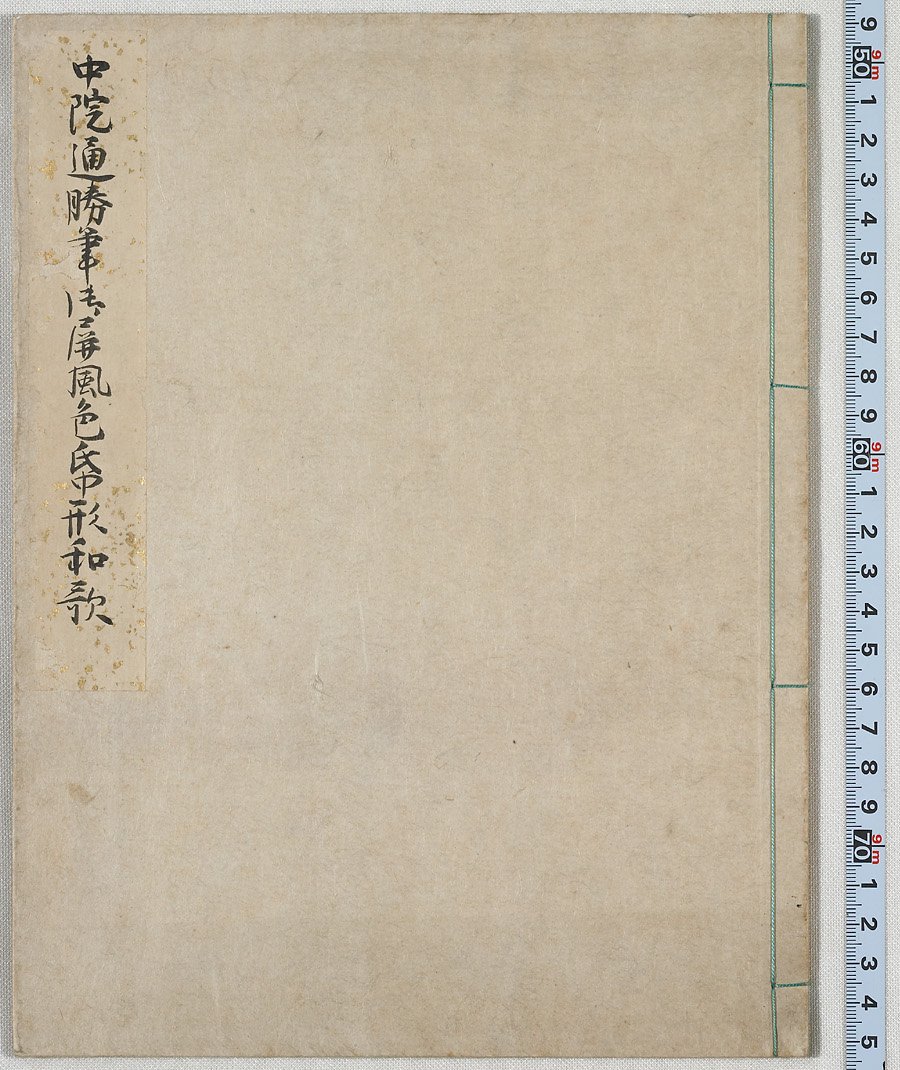 中院通勝筆御屏風色帋形和歌
9
9m
50
1
2
3
4
5
6
7
8
9
9m
60
1
2
3
4
5
6
7
8
9
9m
70
1
2
3
4
5